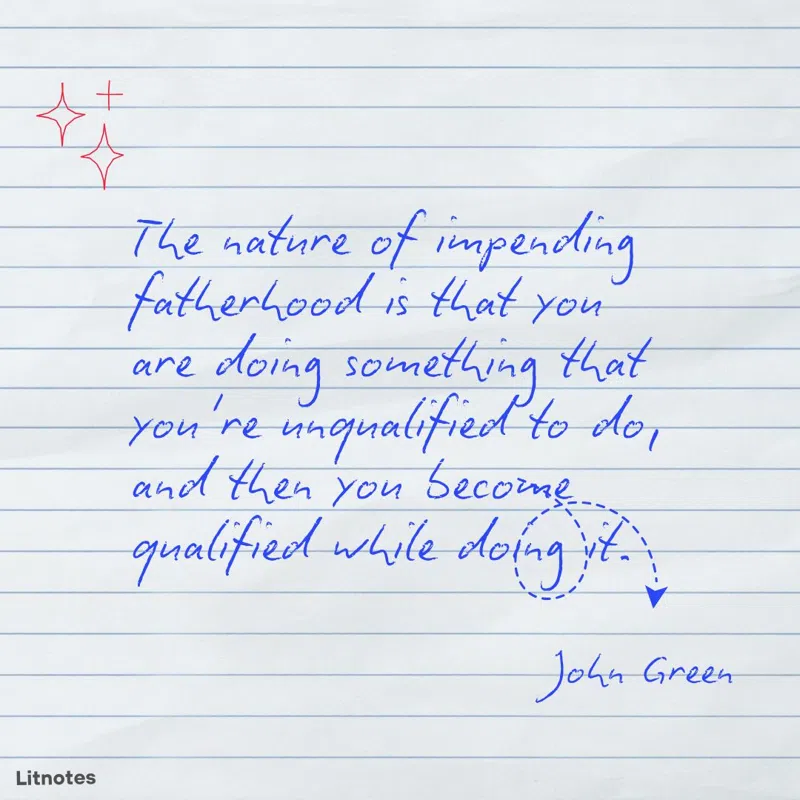 The nature of impending
fatherhood is that you
are doing something that
you're unqualified to do,
and then you become
qualified while doing it.
John Green
Litnotes